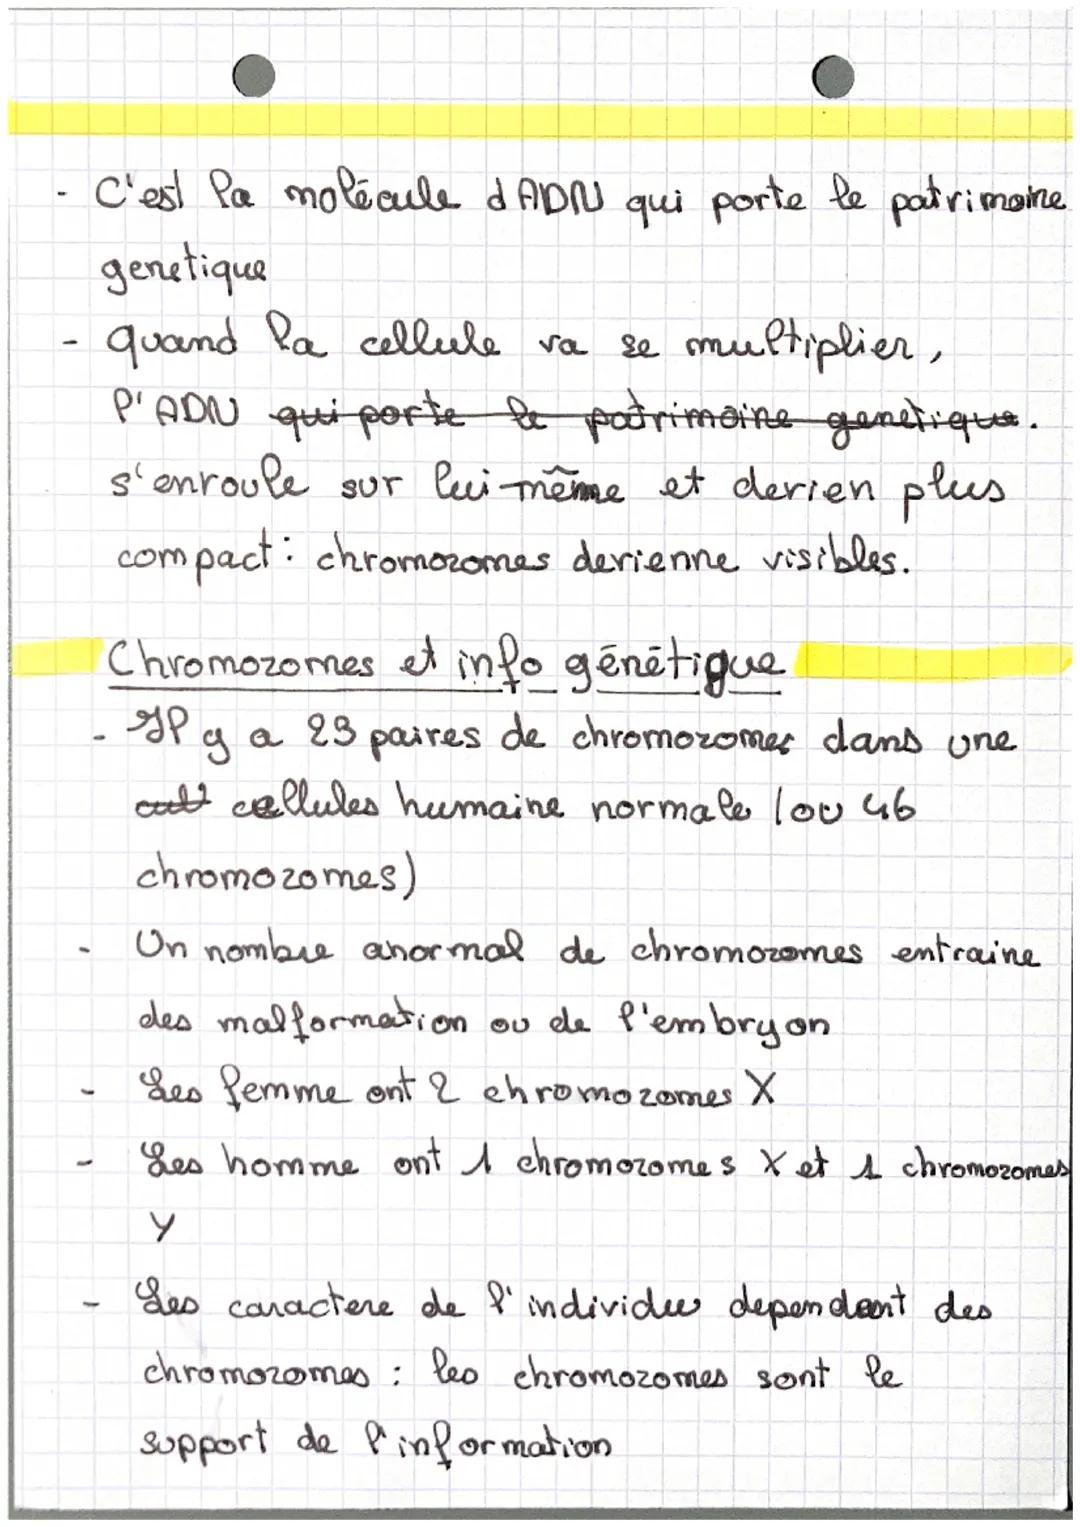 - C'est la molécule d'ADN qui porte le patrimoine
genetique
- quand la cellule va se multiplier,
l'ADN qui porte le patrimoine genetique.
s'enroule sur lui-même et devien plus
compact : chromozomes devienne visibles.
Chromozomes et info génétique
- Il y a 23 paires de chromozomes dans une
cellules humaine normale (ou 46
chromozomes)
- Un nombre anormal de chromozomes entraine
des malformation ou de l'embryon
- Les femme ont 2 chromozomes X
- Les homme ont 1 chromozomes X et 1 chromozomes
Y
- Les caractere de l'individu dependent des
chromozomes : les chromozomes sont le
support de l'information